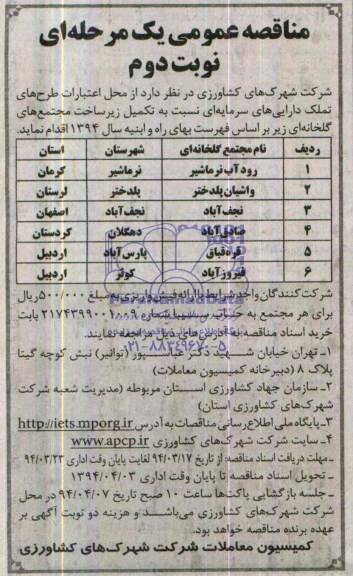 مناقصه عمومی یک مرحله‌ای
نوبت دوم
شرکت شهرک‌های کشاورزی در نظر دارد از محل اعتبارات طرح‌های
تملک دارایی‌های سرمایه‌ای نسبت به تکمیل زیرساخت مجتمع‌های
گلخانه‌ای زیر بر اساس فهرست بهای راه و ابنیه سال ۱۳۹۴ اقدام نماید.
ردیف نام مجتمع گلخانه‌ای شهرستان استان
۱ رودآب نرماشیر نرماشیر کرمان
۲ واشیان پلدختر پلدختر لرستان
۳ نجف‌آباد نجف‌آباد اصفهان
۴ صادق‌آباد دهگلان کردستان
۵ قره‌قباق پارس‌آباد اردبیل
۶ فیروزآباد کوثر اردبیل
شرکت‌کنندگان واجد شرایط با ارائه فیش واریزی به مبلغ ۵۰۰/۰۰۰ ریال
برای هر مجتمع به حساب سیبا شماره ۲۱۷۴۳۹۹۰۰۱۰۰۹ بابت
خرید اسناد مناقصه به آدرس‌های ذیل مراجعه نمایند.
۱ـ تهران خیابان شهید دکتر عباسپور (توانیر) نبش کوچه گیتا
پلاک ۸ (دبیرخانه کمیسیون معاملات)
۲ـ سازمان جهاد کشاورزی استان مربوطه (مدیریت شعبه شرکت
شهرک‌های کشاورزی استان)
۳ـ پایگاه ملی اطلاع‌رسانی مناقصات به آدرس http://iets.mporg.ir
۴ـ سایت شرکت شهرک‌های کشاورزی www.apcp.ir
ـ مهلت دریافت اسناد مناقصه: از تاریخ ۹۴/۰۳/۱۷ لغایت پایان وقت اداری ۹۴/۰۳/۲۳
ـ تحویل اسناد مناقصه تا پایان وقت اداری ۱۳۹۴/۰۴/۰۳
ـ جلسه بازگشایی پاکت‌ها ساعت ۱۰ صبح تاریخ ۹۴/۰۴/۰۷ در محل
شرکت شهرک‌های کشاورزی می‌باشد و هزینه دو نوبت آگهی بر
عهده برنده مناقصه خواهد بود.
کمیسیون معاملات شرکت شهرک‌های کشاورزی
۰۲۱-۸۸۳۴۹۶۷۰-۵